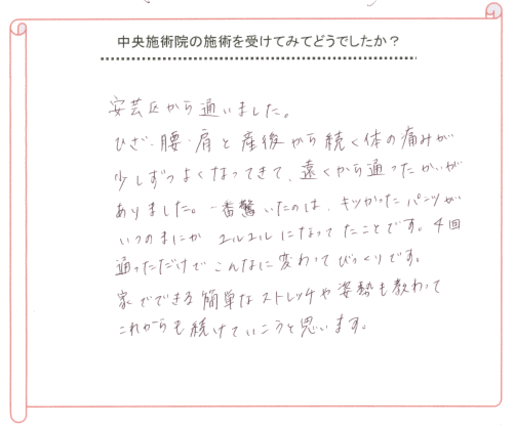 中央施術院の施術を受けてみてどうでしたか？
安芸区から通いました。
ひざ・腰・肩と産後から続く体の痛みが
少しずつよくなってきて、遠くから通ったかいが
ありました。一番驚いたのは、キツかったパンツが
いつのまにか ユルユルになってたことです。4回
通っただけでこんなに変わってびっくりです。
家でできる簡単なストレッチや姿勢も教わって
これからも続けていこうと思います。